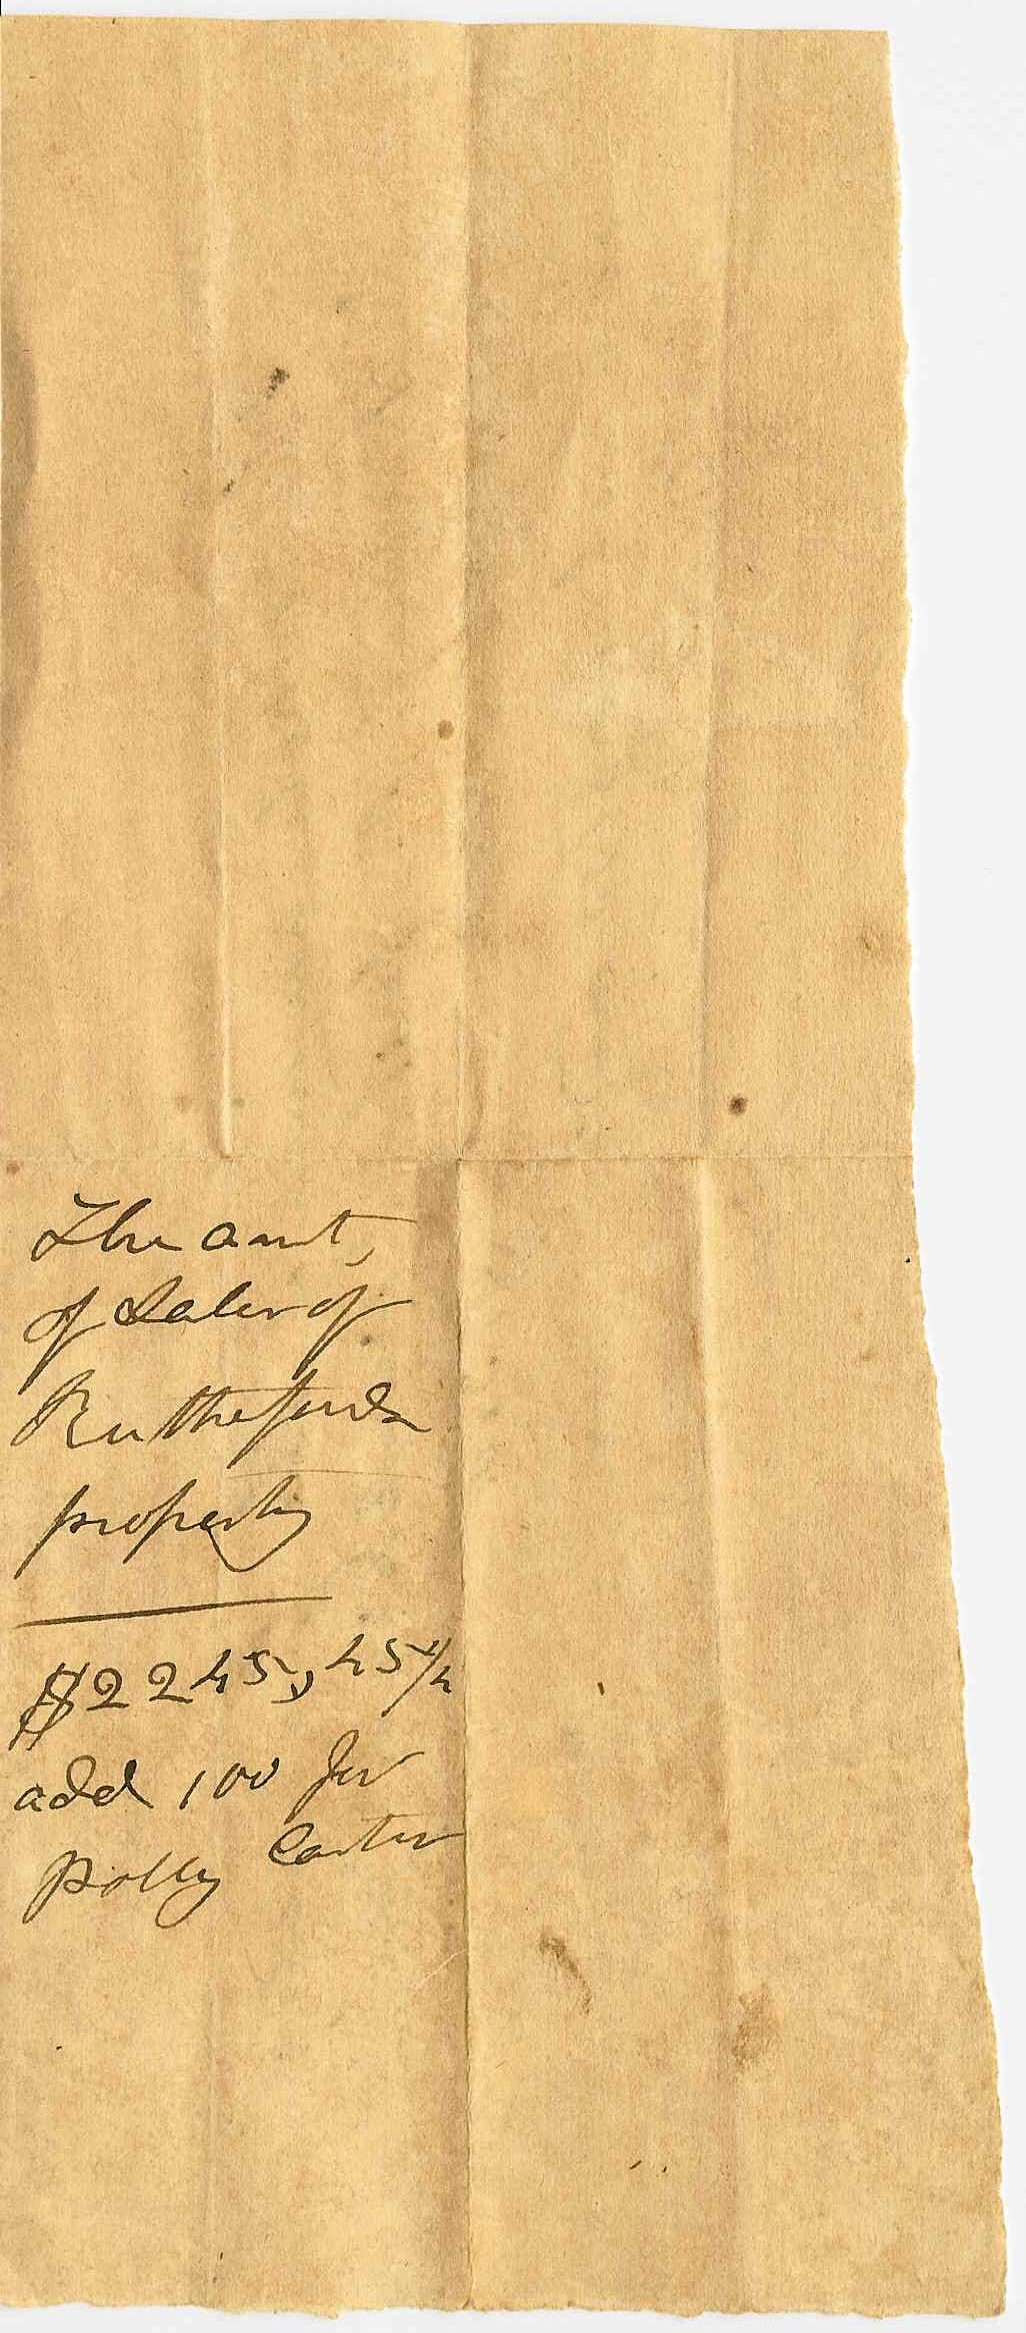 The amt,
of Sales of
Rutherfords
property
$2245,45 1/4
add 100 for
Polly Carter